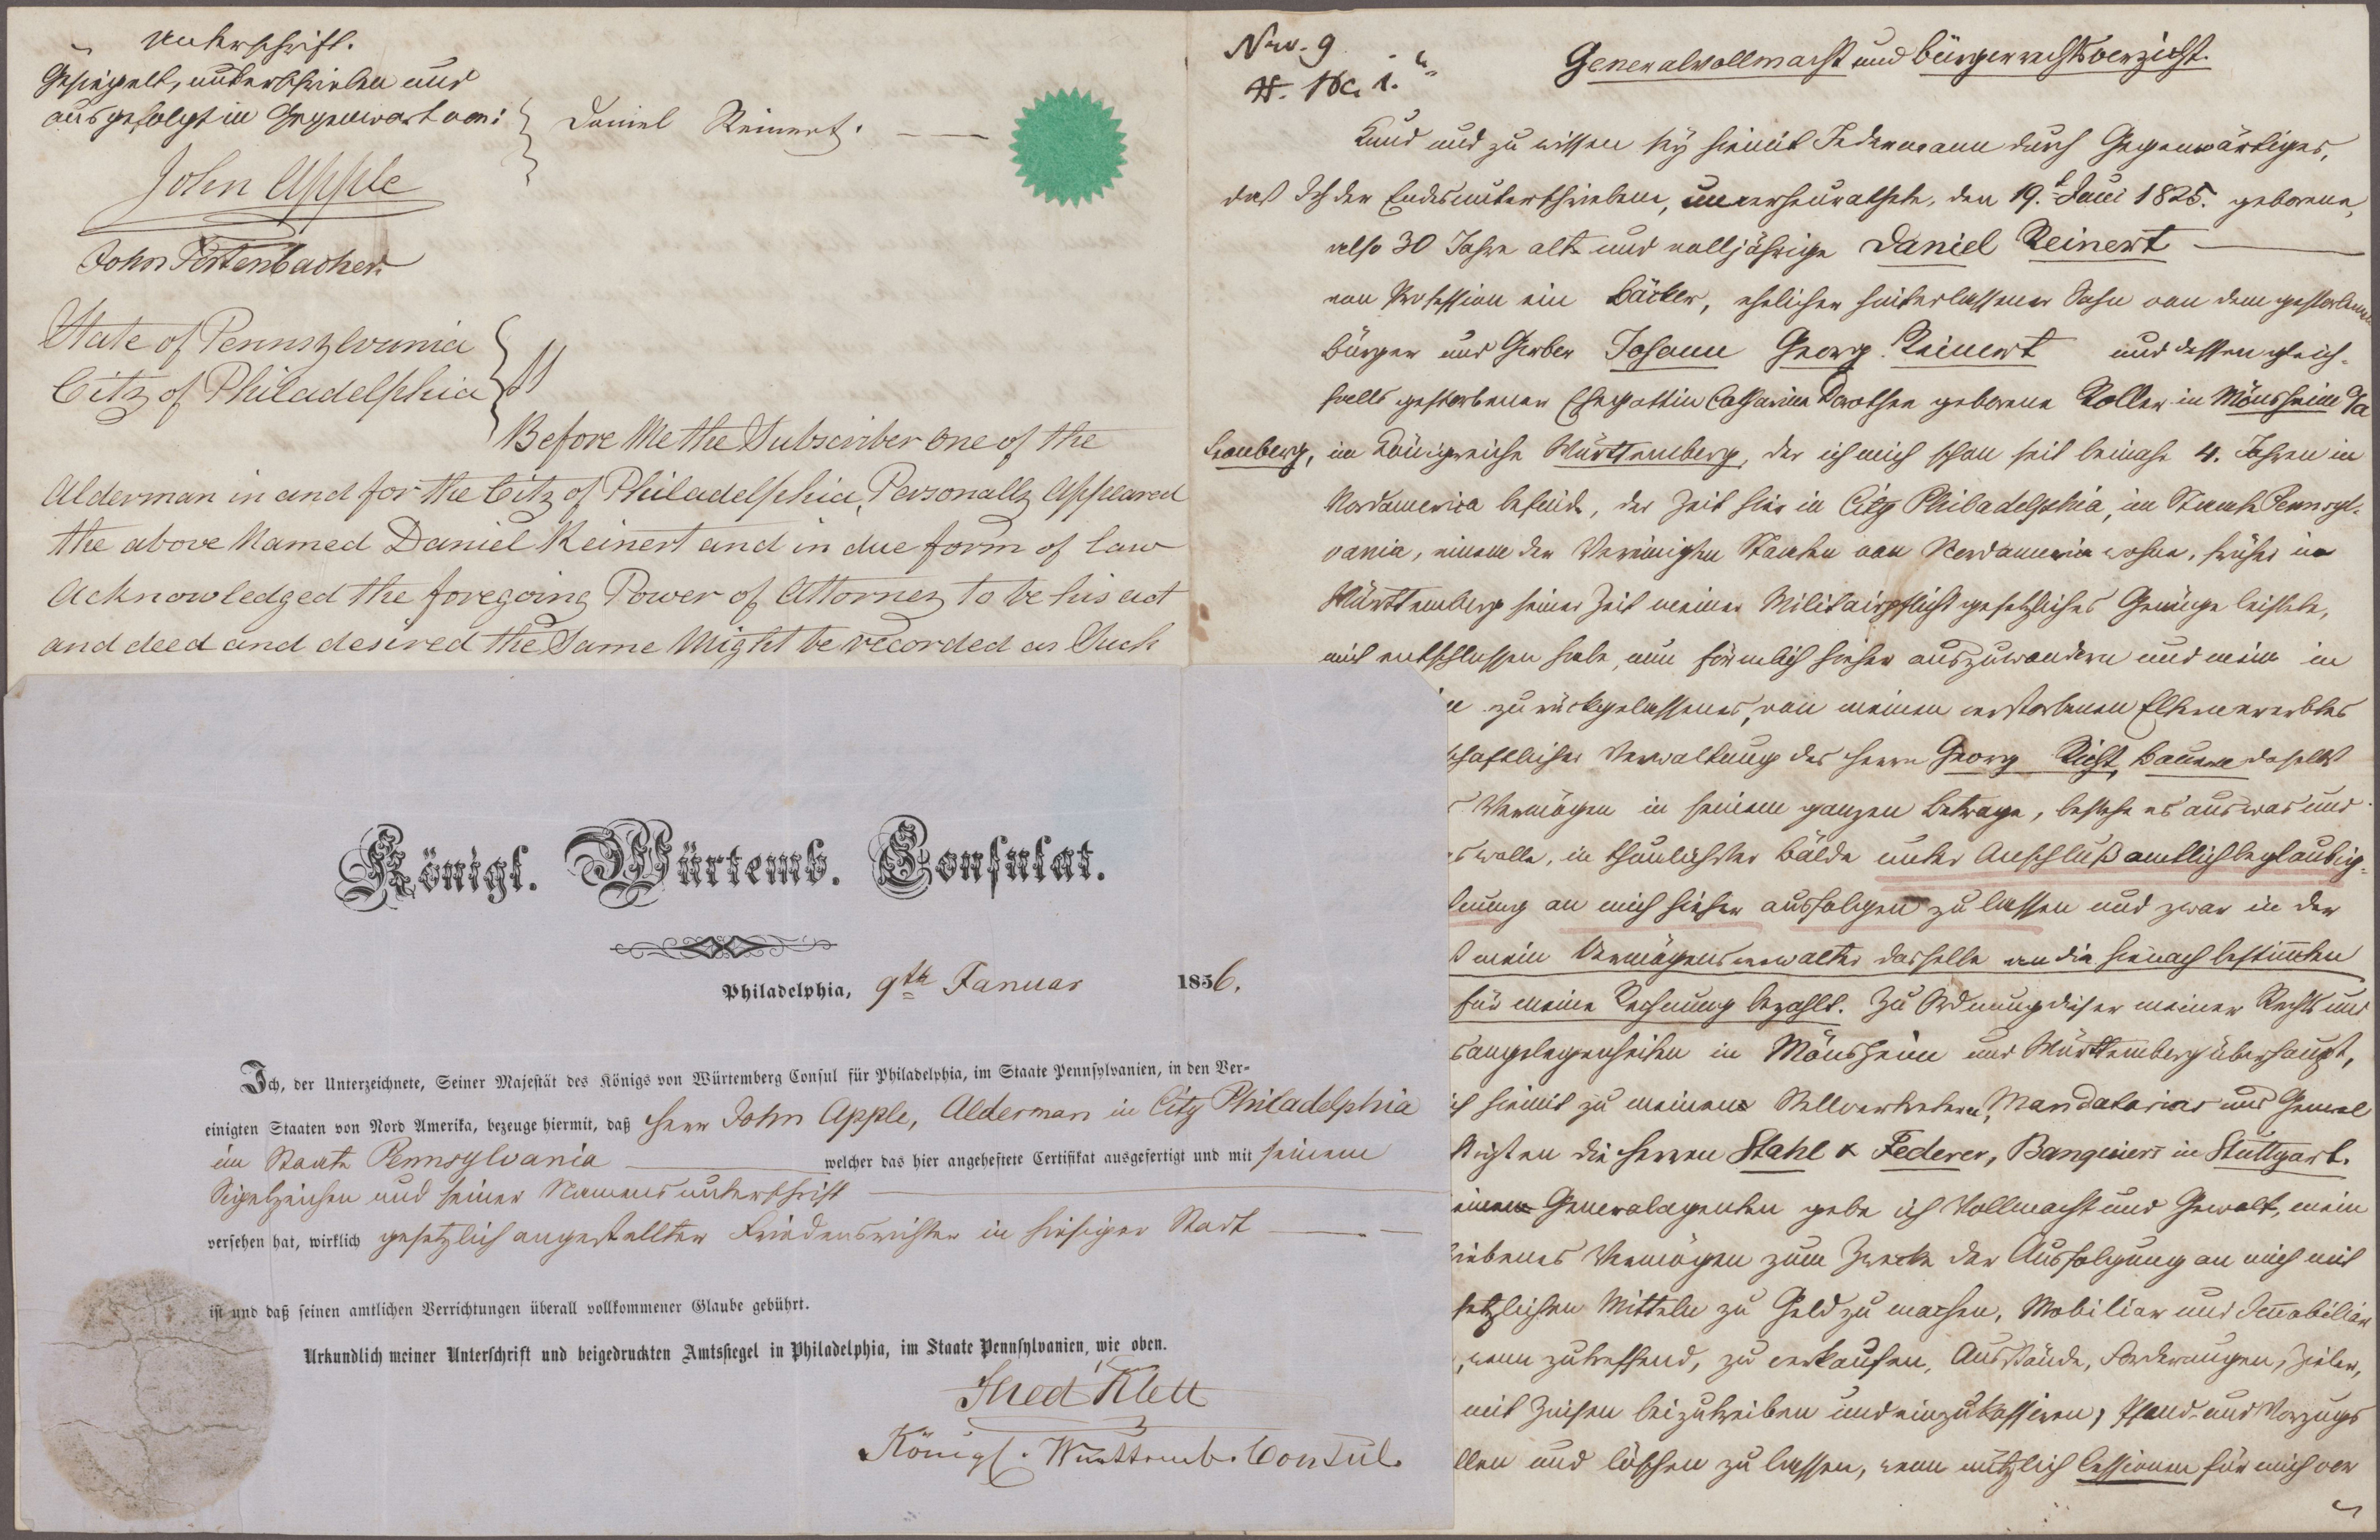 Unterschrift.
Gesiegelt, unterschrieben und
ausgefolgt in Gegenwart von:
Daniel Reinert.
John Apple
John Fortenbacher
State of Pennsylvania
City of Philadelphia } ss
Before Me the Subscriber one of the
Alderman in and for the City of Philadelphia, Personally Appeared
the above Named Daniel Reinert and in due form of law
Acknowledged the foregoing Power of Attorney to be his act
and deed and desired the Same Might be recorded as Such
Königl. Würtemb. Consulat.
Philadelphia, 9th Januar 1856.
Ich, der Unterzeichnete, Seiner Majestät des Königs von Würtemberg Consul für Philadelphia, im Staate Pennsylvanien, in den Ver-
einigten Staaten von Nord Amerika, bezeuge hiermit, daß Herr John Apple, Alderman in City Philadelphia
im Staate Pennsylvania welcher das hier angeheftete Certifikat ausgefertigt und mit seinem
Sigelzeichen und seiner Namensunterschrift
versehen hat, wirklich gesetzlich angestellter Friedensrichter in hiesiger Stadt
ist und daß seinen amtlichen Verrichtungen überall vollkommener Glaube gebührt.
Urkundlich meiner Unterschrift und beigedruckten Amtssiegel in Philadelphia, im Staate Pennsylvanien, wie oben.
Fred Klett
Königl. Württemb. Consul.
Nro. 9
Generalvollmacht und Bürgerrechtsverzicht.
Kund und zu wissen sey hiemit Jedermann durch Gegenwärtiges,
daß Ich der Endesunterschriebene, unverheurathete, den 19. Juni 1825. geborene,
also 30 Jahre alte und volljährige Daniel Reinert
von Profession ein Bäcker, ehelicher hinterlassener Sohn von dem gestorbenen
Bürger und Gerber Johann Georg Reinert und dessen gleich-
falls gestorbenen Ehegattin Catharina Dorothea geborene Koller in Mönsheim
Leonberg, im Königreiche Württemberg, der ich mich schon seit beinahe 4. Jahren in
Nordamerica befinde, der Zeit hier in City Philadelphia, im Staate Pennsyl-
vania, einem der Vereinigten Staaten von Nordamerica wohne, früher in
Württemberg seiner Zeit meiner Militairpflicht gesetzliches Genüge leistete,
mich entschlossen habe, nun förmlich hieher auszuwandern und mein in
zurückgelassenes, von meinen verstorbenen Eltern ererbtes
schaftlicher Verwaltung des Herrn Georg Richt, Bauern daselbst
Vermögen in seinem ganzen Betrage, bestehe es aus was und
es wolle, in thunlichster Bälde unter Anschluß amtlich beglaubig-
nung an mich hieher ausfolgen zu lassen und zwar in der
mein Vermögensverwalter dasselbe an die hienach bestimmten
für meine Rechnung bezahlt. Zu Ordnung dieser meiner Rechts und
sangelegenheiten in Mönsheim und Württemberg überhaupt,
ich hiemit zu meinen Stellvertretern, Mandatarien und General
tigten die Herren Stahl & Federer, Banquiers in Stuttgart.
einen Generalagenten gebe ich Vollmacht und Gewalt, mein
iebenes Vermögen zum Zwecke der Ausfolgung an mich mit
setzlichen Mitteln zu Geld zu machen, Mobiliar und Immobiliar
, wenn zutreffend, zu verkaufen, Ausstände, Forderungen, Zieler,
mit Zinsen beizutreiben und einzukassiren, Pfand- und Vorzugs
llen und löschen zu lassen, wenn nützlich Cessionen für mich vor